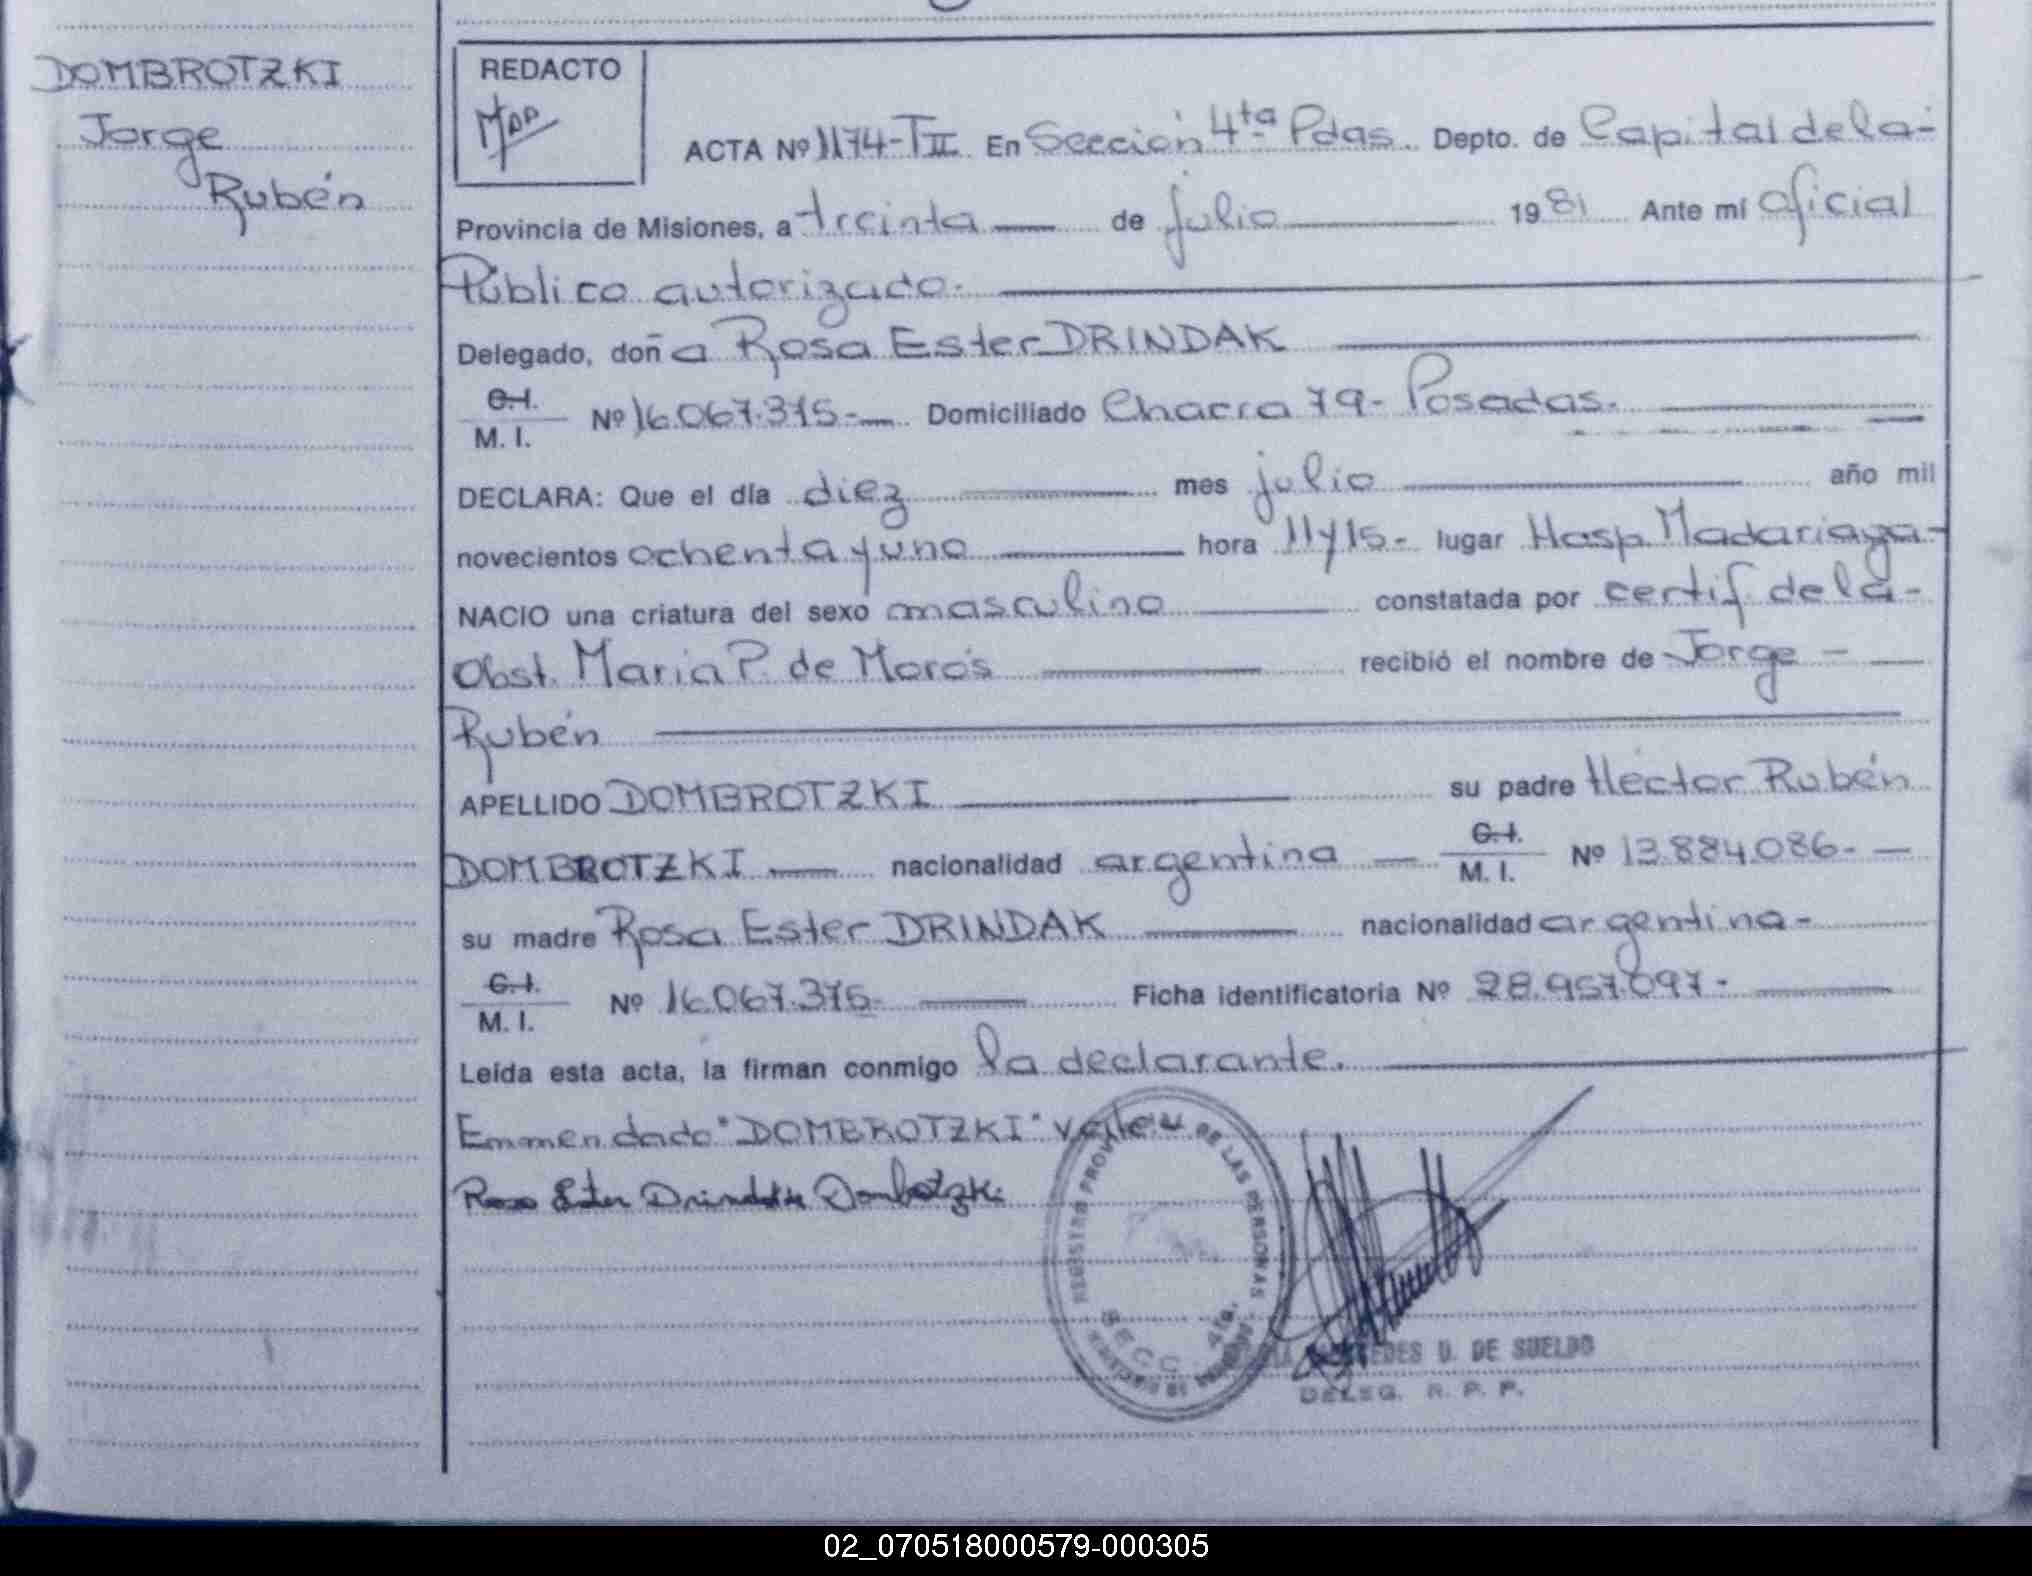 DOMBROTZKI
Jorge
Rubén
REDACTO
ACTA Nº 1174-TII En Sección 4ta Pdas. Depto. de Capital de la-
Provincia de Misiones, a treinta de julio 1981 Ante mí oficial
Público autorizado.
Delegado, doña Rosa Ester DRINDAK
C.I.
M. I. Nº 16.067.375- Domiciliado Chacra 79- Posadas.
DECLARA: Que el día diez mes julio año mil
novecientos ochenta y uno hora 11y15- lugar Hosp. Madariaga-
NACIO una criatura del sexo masculino constatada por certif de la-
Obst. Maria P. de Moros recibió el nombre de Jorge -
Rubén
APELLIDO DOMBROTZKI su padre Héctor Rubén
DOMBROTZKI nacionalidad argentina C.I. M. I. Nº 13.884.086-
su madre Rosa Ester DRINDAK nacionalidad argentina-
C.I.
M. I. Nº 16.067.375- Ficha identificatoria Nº 28.957.097-
Leída esta acta, la firman conmigo la declarante.
Enmendado "DOMBROTZKI" vale.
Rosa Ester Drindak de Dombrotzki
REGISTRO PROVINCIAL DE LAS PERSONAS
SECC. 4ta.
DE SUELDO
DELEG. R. P. P.
02_070518000579-000305